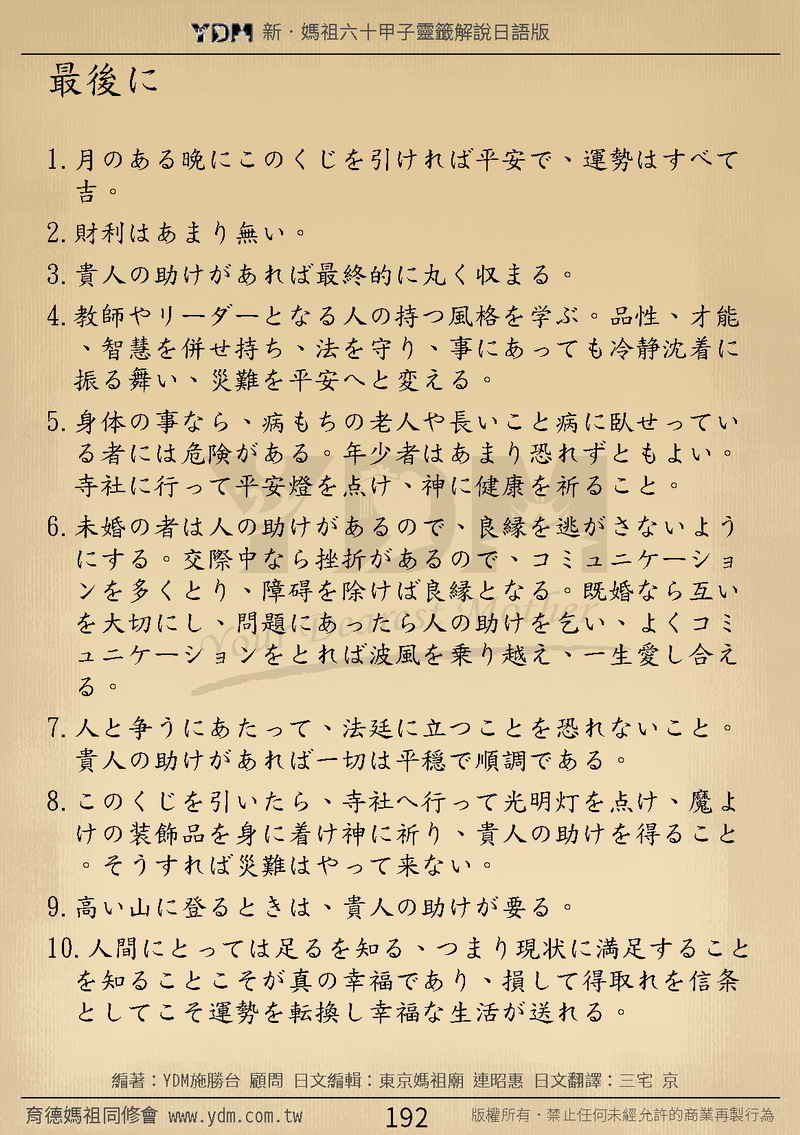 YDM 新．媽祖六十甲子靈籤解說日語版
最後に
1. 月のある晩にこのくじを引ければ平安で、運勢はすべて
吉。
2. 財利はあまり無い。
3. 貴人の助けがあれば最終的に丸く収まる。
4. 教師やリーダーとなる人の持つ風格を学ぶ。品性、才能
、智慧を併せ持ち、法を守り、事にあっても冷静沈着に
振る舞い、災難を平安へと変える。
5. 身体の事なら、病もちの老人や長いこと病に臥せってい
る者には危険がある。年少者はあまり恐れずともよい。
寺社に行って平安燈を点け、神に健康を祈ること。
6. 未婚の者は人の助けがあるので、良縁を逃がさないよう
にする。交際中なら挫折があるので、コミュニケーショ
ンを多くとり、障碍を除けば良縁となる。既婚なら互い
を大切にし、問題にあったら人の助けを乞い、よくコミ
ュニケーションをとれば波風を乗り越え、一生愛し合え
る。
7. 人と争うにあたって、法廷に立つことを恐れないこと。
貴人の助けがあれば一切は平穏で順調である。
8. このくじを引いたら、寺社へ行って光明灯を点け、魔よ
けの装飾品を身に着け神に祈り、貴人の助けを得ること
。そうすれば災難はやって来ない。
9. 高い山に登るときは、貴人の助けが要る。
10. 人間にとっては足るを知る、つまり現状に満足すること
を知ることこそが真の幸福であり、損して得取れを信条
としてこそ運勢を転換し幸福な生活が送れる。
YDM
Your Dearest Mother
編著：YDM施勝台 顧問 日文編輯：東京媽祖廟 連昭惠 日文翻譯：三宅 京
育德媽祖同修會 www.ydm.com.tw 192 版權所有．禁止任何未經允許的商業再製行為